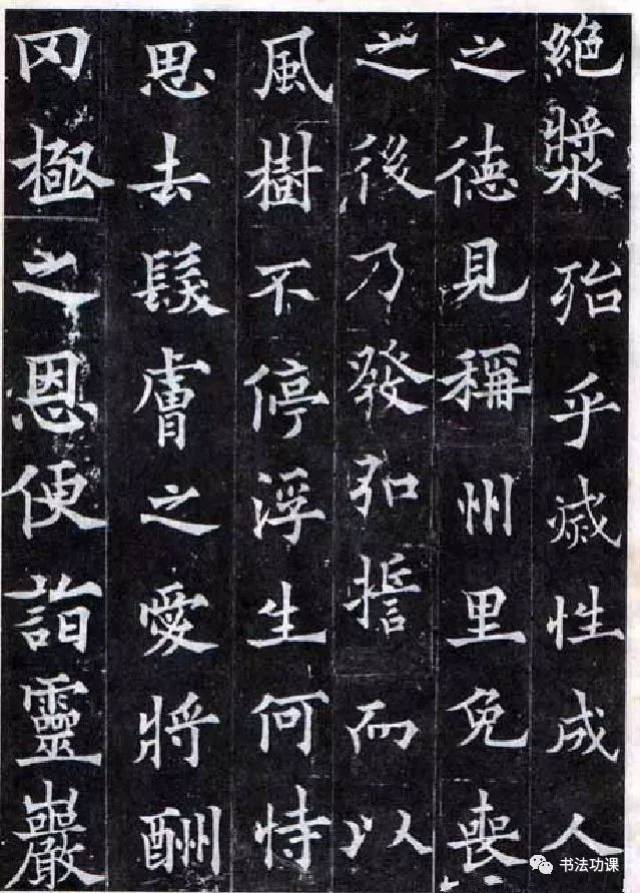 絕漿殆乎滅性成人
之德見稱州里免喪
之後乃發弘誓而以
風樹不停浮生何恃
思去髮膚之愛將酬
罔極之恩便詣靈巖
书法功课